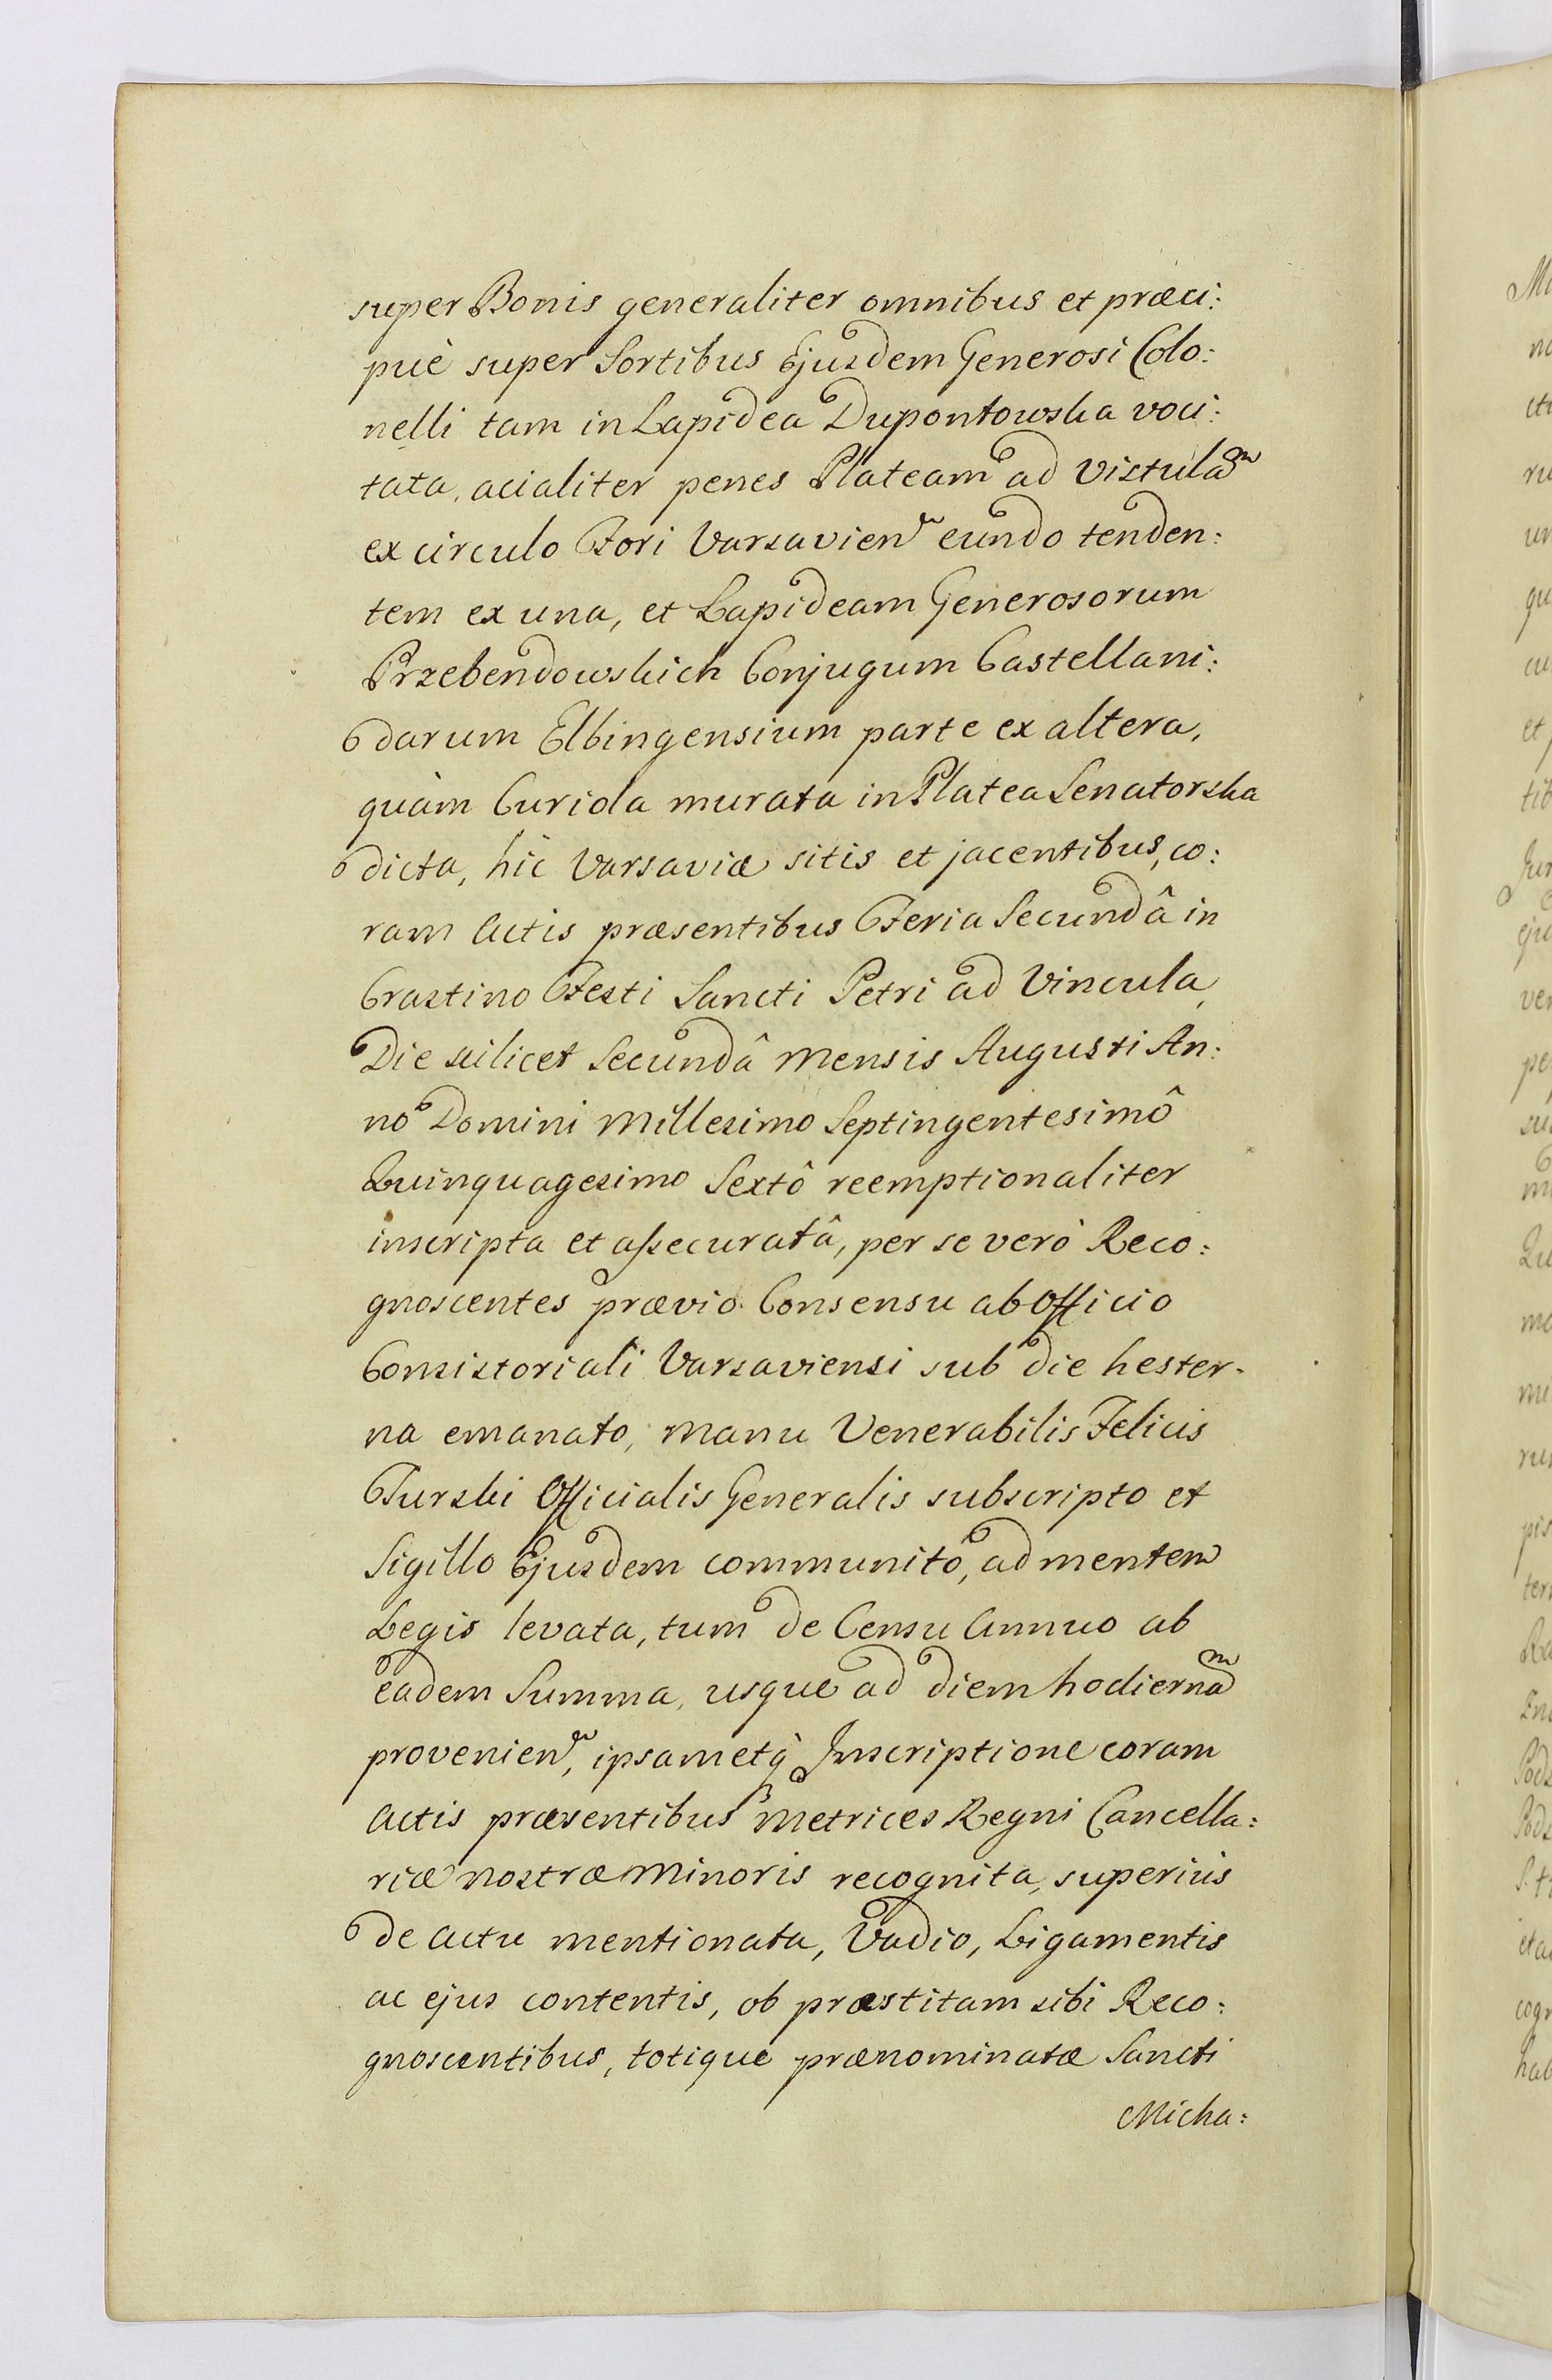 super Bonis generaliter omnibus et præci:
puè super Sortibus Ejusdem Generosi Colo:
nelli tam in Lapidea Dupontowska voci:
tata, acialiter penes Plateam ad Vistulam
ex circulo Fori Varsavien̄ eundo tenden:
tem ex una, et Lapideam Generosorum
Przebendowskich Conjugum Castellani:
darum Elbingensium parte ex altera,
quàm Curiola murata in Platea Senatorska
dicta, hic Varsaviæ sitis et jacentibus, co:
ram Actis præsentibus Feria Secundâ in
Crastino Festi Sancti Petri ad Vincula,
Die scilicet Secundâ Mensis Augusti An:
no Domini Millesimo Septingentesimô
Quinquagesimo Sextô reemptionaliter
inscripta et assecuratâ, per se verò Reco:
gnoscentes prævio Consensu ab Officio
Consistoriali Varsaviensi sub die hester-
na emanato, manu Venerabilis Felicis
Turski Officialis Generalis subscripto et
Sigillo Ejusdem communitô, ad mentem
Legis levata, tum de Censu Annuo ab
eadem Summa, usque ad diem hodiernam
provenien̄, ipsametq̀ Inscriptione coram
Actis præsentibus Metrices Regni Cancella:
riæ nostræ Minoris recognita, superiùs
de actu mentionata, Vadio, Ligamentis
ac ejus contentis, ob præstitam sibi Reco:
gnoscentibus, totique prænominatæ Sancti
Micha: